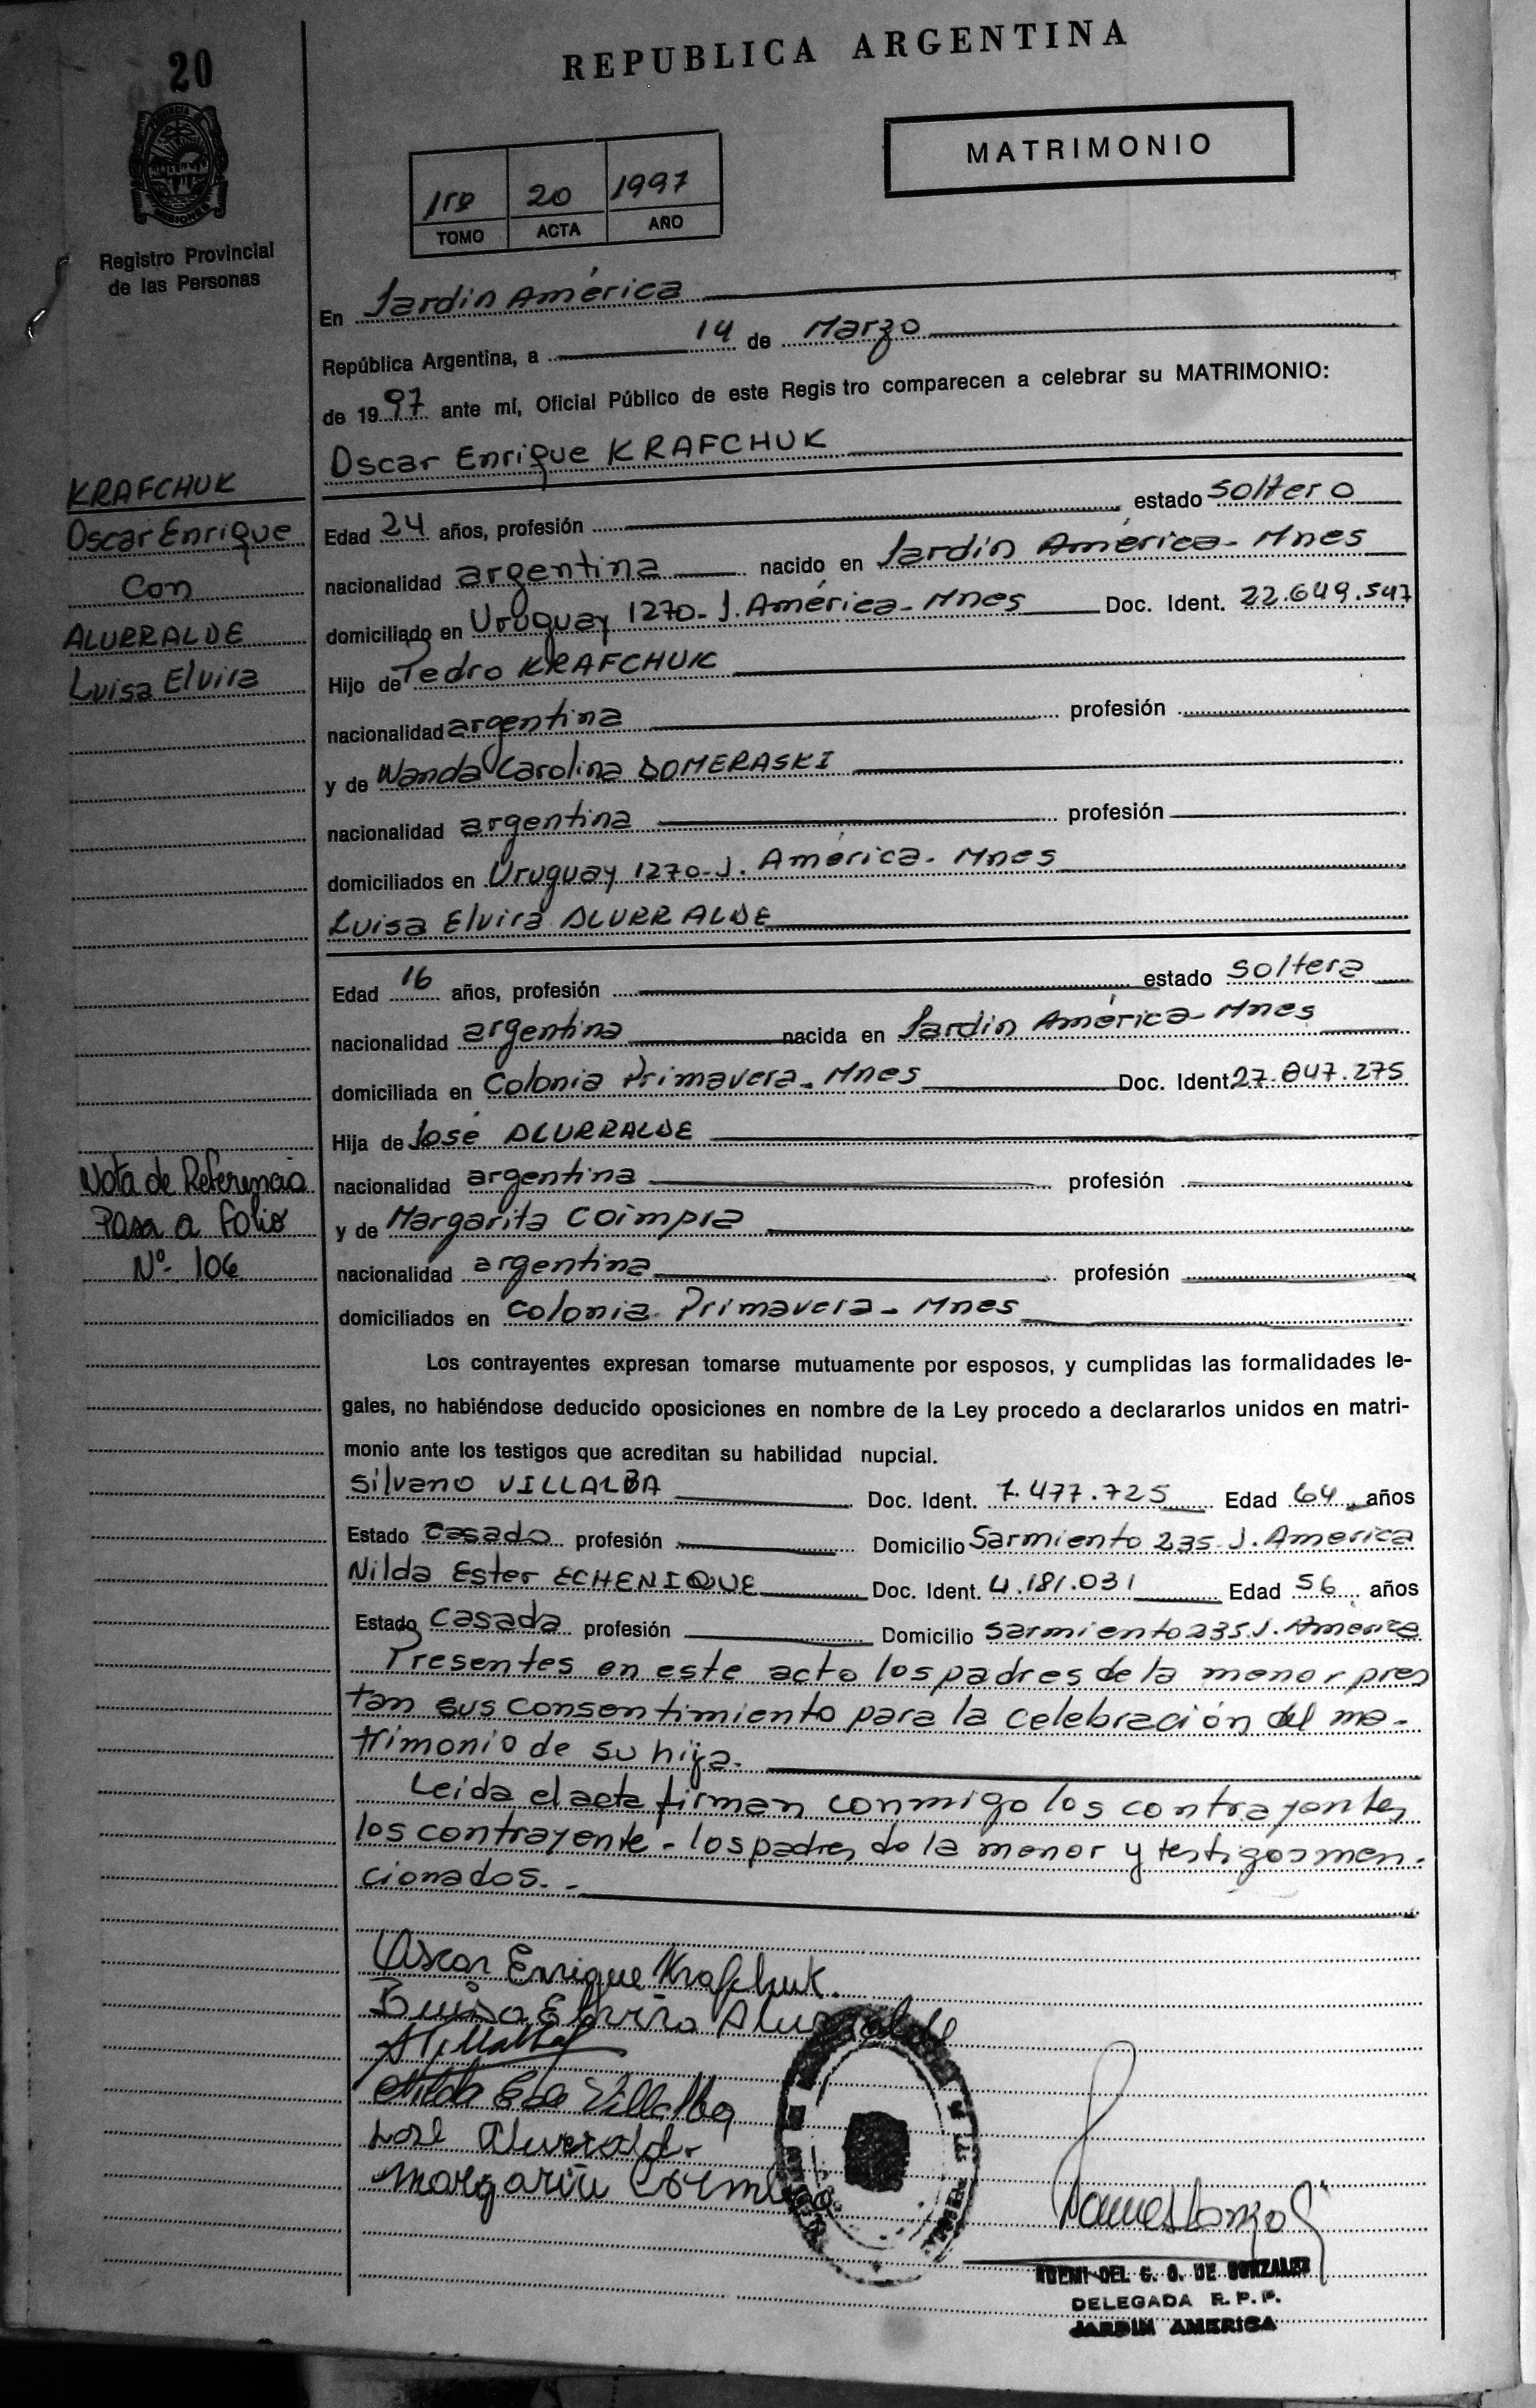 20
REPUBLICA ARGENTINA
MATRIMONIO
1ro 20 1997
TOMO ACTA AÑO
Registro Provincial
de las Personas
En Jardín América
República Argentina, a 14 de Marzo
de 1997 ante mí, Oficial Público de este Registro comparecen a celebrar su MATRIMONIO:
Oscar Enrique KRAFCHUK
KRAFCHUK
Oscar Enrique
Con
ALURRALDE
Luisa Elvira
Edad 24 años, profesión estado soltero
nacionalidad argentina nacido en Jardín América - Mnes
domiciliado en Uruguay 1270 - J. América - Mnes Doc. Ident. 22.649.547
Hijo de Pedro KRAFCHUK
nacionalidad argentina profesión
y de Wanda Carolina DOMERASKI
nacionalidad argentina profesión
domiciliados en Uruguay 1270 - J. América - Mnes
Luisa Elvira ALURRALDE
Edad 16 años, profesión estado soltera
nacionalidad argentina nacida en Jardín América - Mnes
domiciliada en Colonia Primavera - Mnes Doc. Ident 27.847.275
Hija de José ALURRALDE
nacionalidad argentina profesión
y de Margarita COimpra
nacionalidad argentina profesión
domiciliados en Colonia Primavera - Mnes
Nota de Referencia
Pasa a folio
Nº 106
Los contrayentes expresan tomarse mutuamente por esposos, y cumplidas las formalidades le-
gales, no habiéndose deducido oposiciones en nombre de la Ley procedo a declararlos unidos en matri-
monio ante los testigos que acreditan su habilidad nupcial.
Silvano VILLALBA Doc. Ident. 7.477.725 Edad 64 años
Estado casado profesión Domicilio Sarmiento 235 J. America
Nilda Ester ECHENIQUE Doc. Ident. 4.181.031 Edad 56 años
Estado Casada profesión Domicilio Sarmiento 235 J. America
Presentes en este acto los padres de la menor pres
tan sus consentimiento para la celebración del ma-
trimonio de su hija.
Leida el acta firman conmigo los contrayentes
los contrayente - los padres de la menor y testigos men-
cionados. -
Oscar Enrique Krafchuk
Luisa Elvira Alurralde
Nilda Villalba
José Alurralde
Margarita
NOEMI DEL C. O. DE GONZALEZ
DELEGADA R. P. P.
JARDIN AMERICA